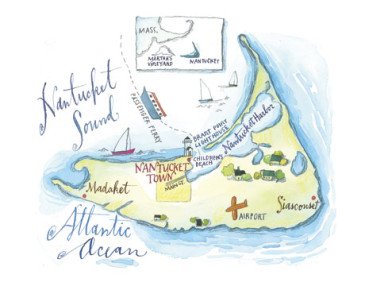 MASS.
MARTHA'S
VINEYARD
NANTUCKET
Nantucket
Sound
PASSENGER FERRY
BRANT POINT
LIGHTHOUSE
Nantucket Harbor
CHILDREN'S
BEACH
NANTUCKET
TOWN
MAIN ST.
Madaket
Siasconset
AIRPORT
Atlantic
Ocean